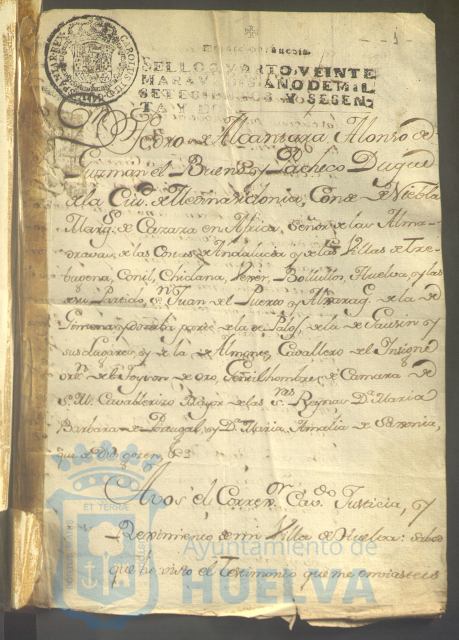 SELLO QVARTO, VEINTE
MARAVEDIS, AÑO DE MIL
SETECIENTOS Y SESEN-
TA Y DOS.
Dn. Pedro de Alcantara Alonso de
Guzman el Bueno, y Pacheco Duque
de la Ciud. de Medina Sidonia, Conde de Niebla
Marqs. de Cazaza en Africa, Señor de las Alma-
dravas, de las Costas de Andalucia, y de las Villas de Tre-
buxena, Conil, Chiclana, Vexer, Bollullos, Huelva, y las
de su Partido, Sn. Juan del Puerto y de la de
Ximena, y parte de la de Palos, de la de Gausin, y
sus lugares, y de la de Almonte, Cavallero del Insigne
orn. del Toyson de oro, Gentilhombre de Camara de
S. M. Cavallerizo Mayor de las Sras. Reynas Da. Maria
Barbara de Portugal, y Da. Maria Amalia de Saxonia,
que de Dios gozen, &a
A vos el Correxr. Cavdo. Justicia, y
Reximiento de mi Villa de Huelva: sabed
que he visto el testimonio que me enviasteis
ET TERRÆ
Ayuntamiento de
HUELVA